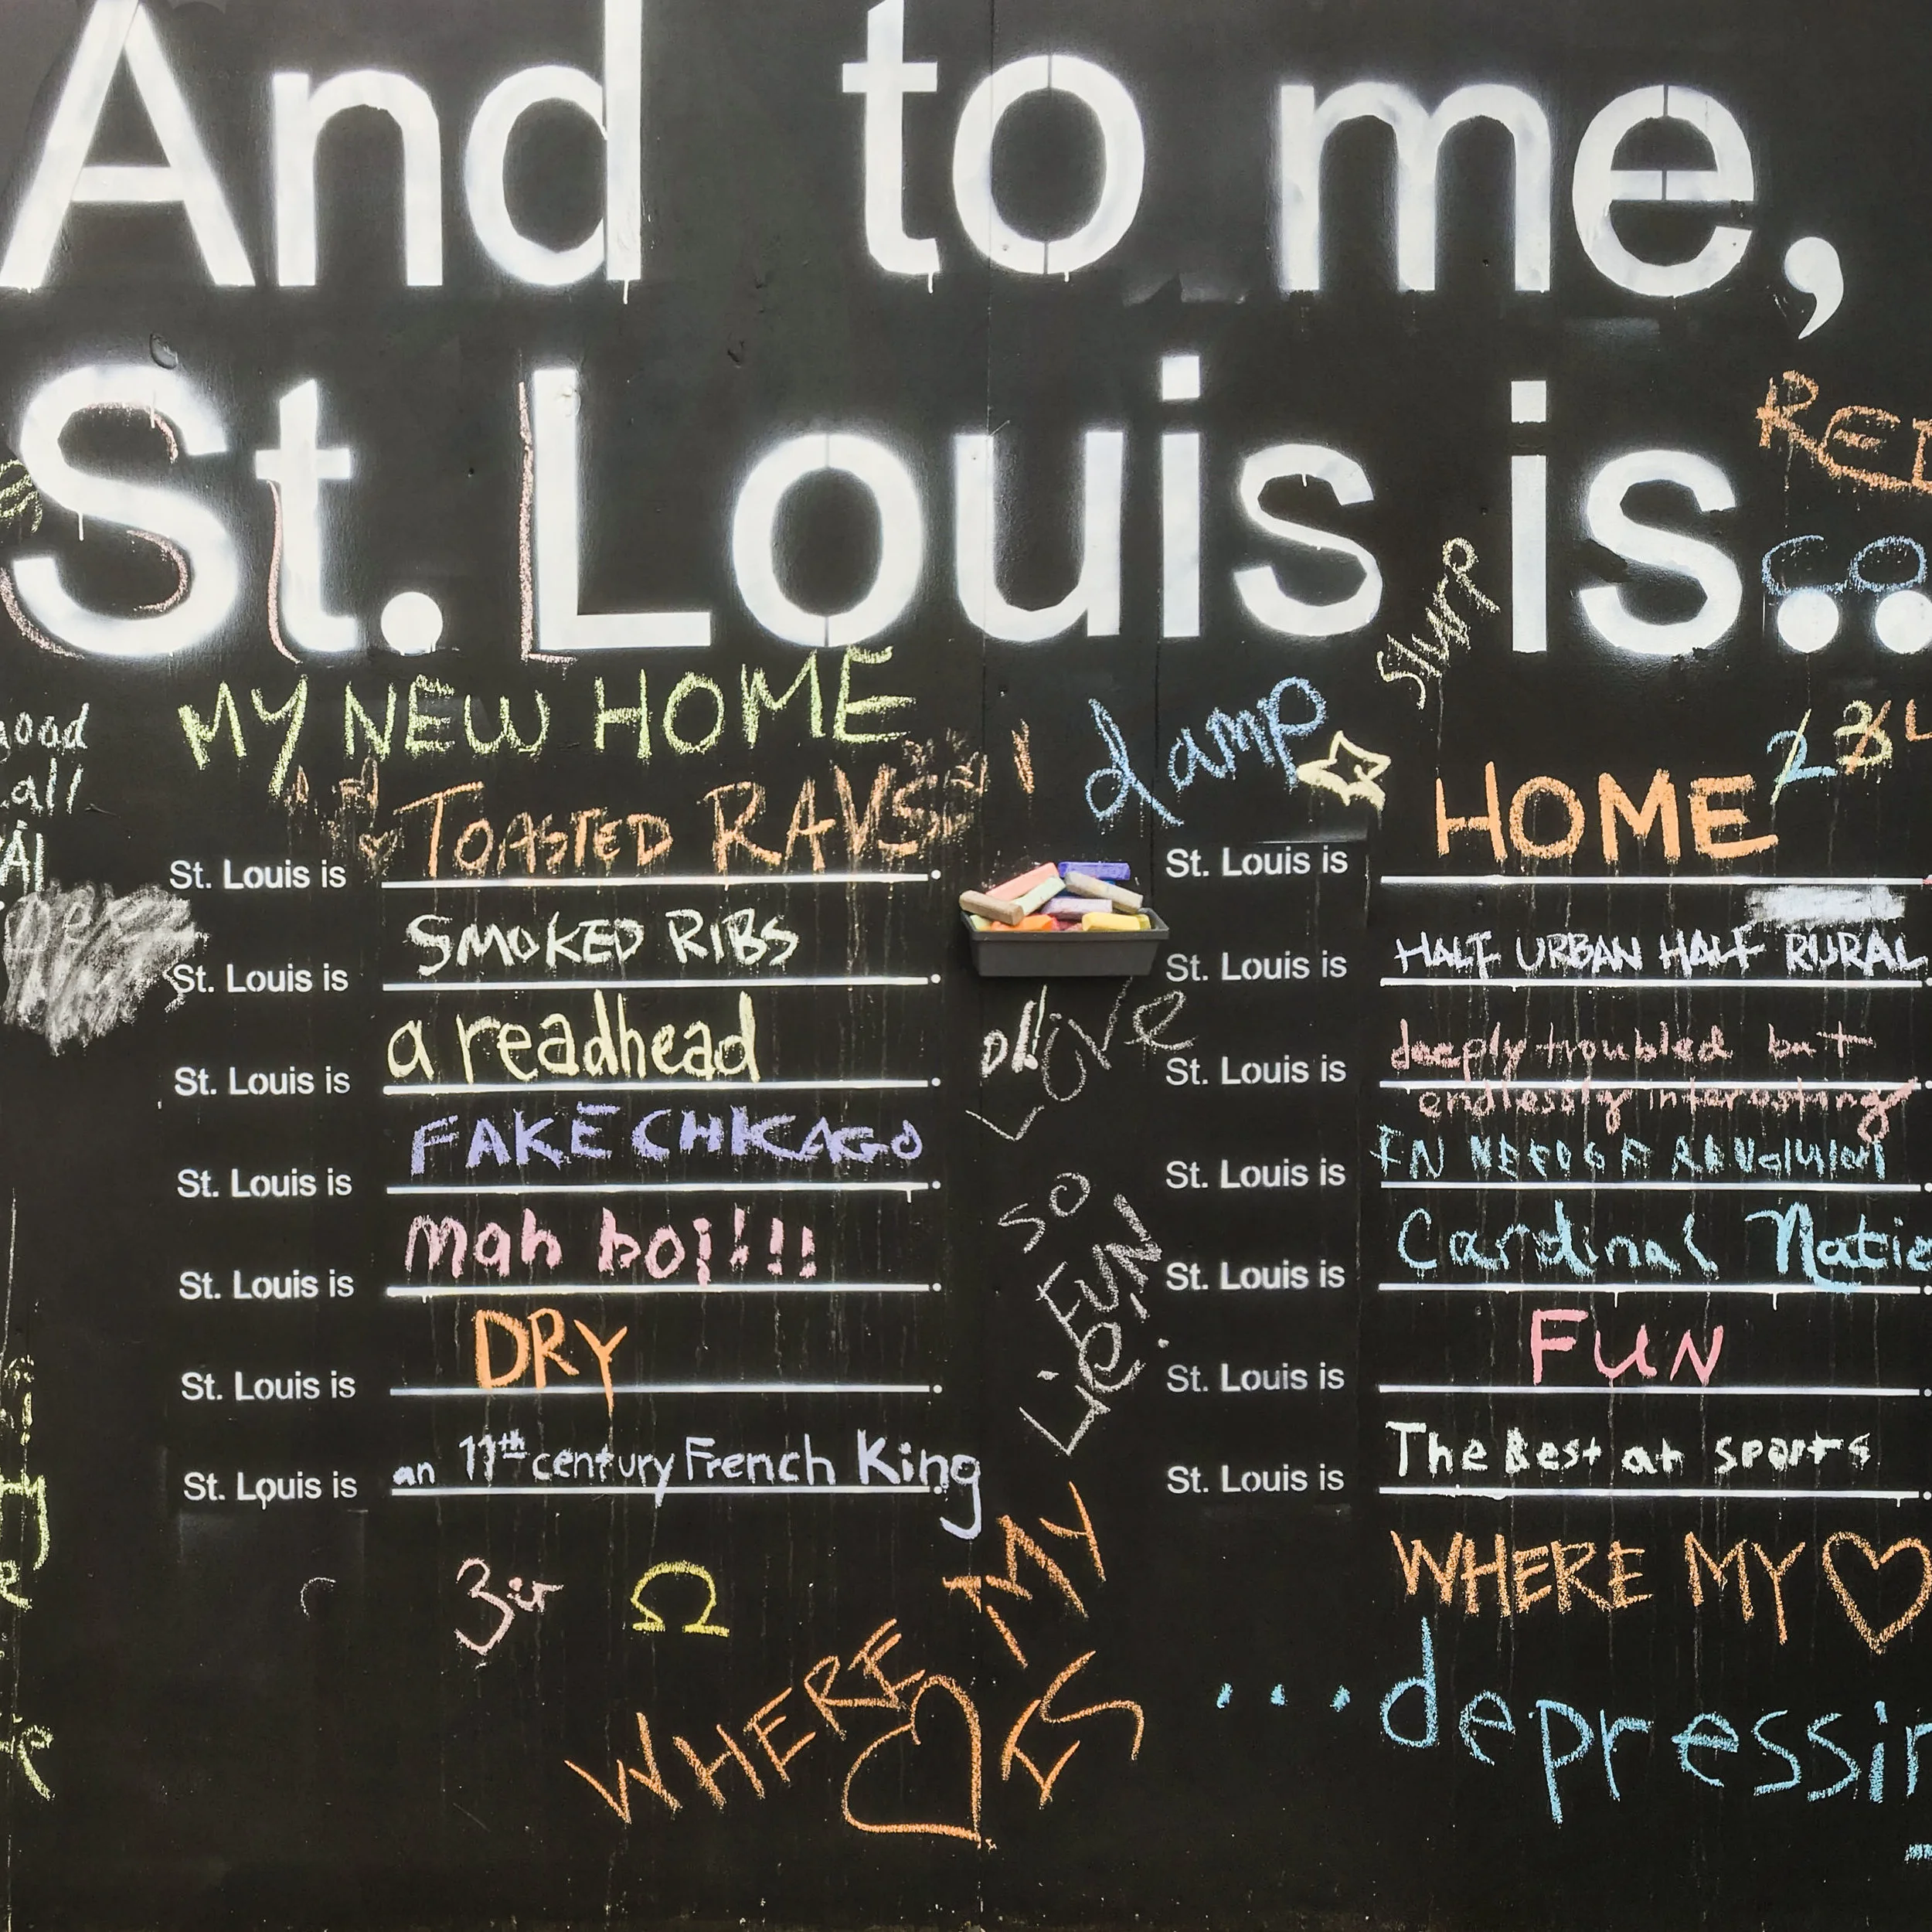 And to me,
St. Louis is..
RED
CO
slurp
good
all
MY NEW HOME
damp
2 3 4
St. Louis is TOASTED RAVS.
St. Louis is SMOKED RIBS.
St. Louis is a readhead.
St. Louis is FAKE CHICAGO.
St. Louis is mah boi!!!.
St. Louis is DRY.
St. Louis is an 11th century French King.
LOVE
SO
FUN
Lie
St. Louis is HOME
St. Louis is HALF URBAN HALF RURAL.
St. Louis is deeply troubled but
endlessly interesting
St. Louis is IN NEED OF A REVOLUTION.
St. Louis is Cardinal Natio
St. Louis is FUN
St. Louis is The Best at sports.
WHERE MY ♡
...depressin
Ω
WHERE MY
♡ IS